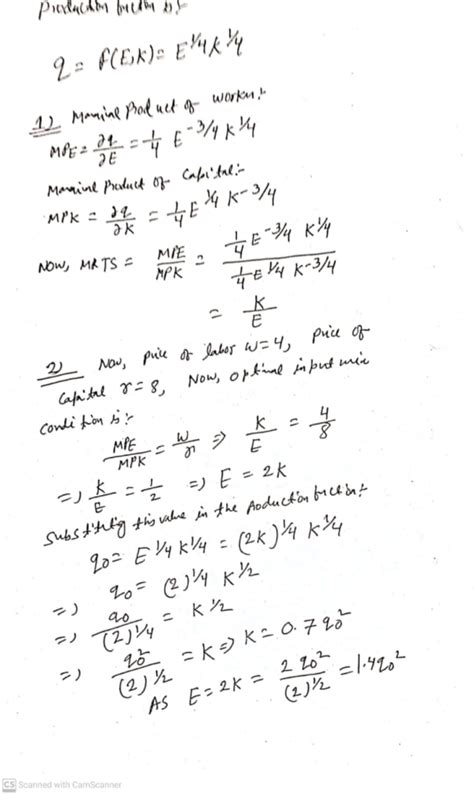 Production function is:-
q = f(E,K) = E^1/4 K^1/4
1) Marginal Product of worker:-
MPE = ∂q/∂E = 1/4 E^-3/4 K^1/4
Marginal Product of Capital:-
MPK = ∂q/∂K = 1/4 E^1/4 K^-3/4
Now, MRTS = MPE/MPK = (1/4 E^-3/4 K^1/4)/(1/4 E^1/4 K^-3/4)
= K/E
2) Now, price of labor w=4, price of
Capital r=8, Now, optimal input mix
condition is:-
MPE/MPK = w/r => K/E = 4/8
=> K/E = 1/2 => E = 2K
Substituting this value in the Production function:-
q0 = E^1/4 K^1/4 = (2K)^1/4 K^1/4
=> q0 = (2)^1/4 K^1/2
=> q0/(2)^1/4 = K^1/2
=> q0^2/(2)^1/2 = K => K = 0.7 q0^2
AS E = 2K = 2 q0^2/(2)^1/2 = 1.4 q0^2
CS Scanned with CamScanner